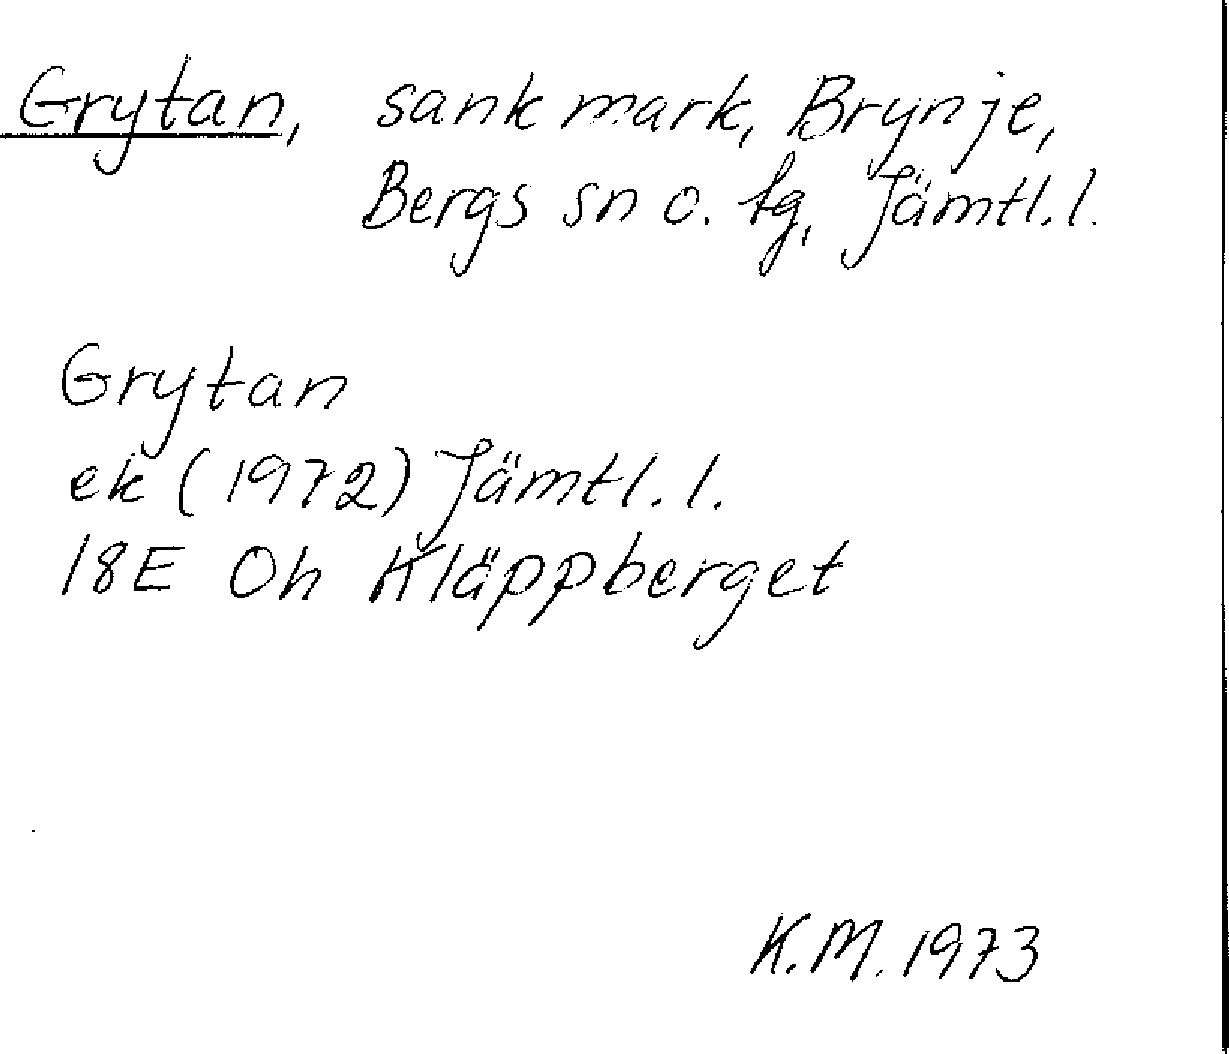 Grytan, sank mark, Brynje,
Bergs sn o. tg, Jämtl. l.
Grytan
ek (1972) Jämtl. l.
18E Oh Kläppberget
K.M. 1973